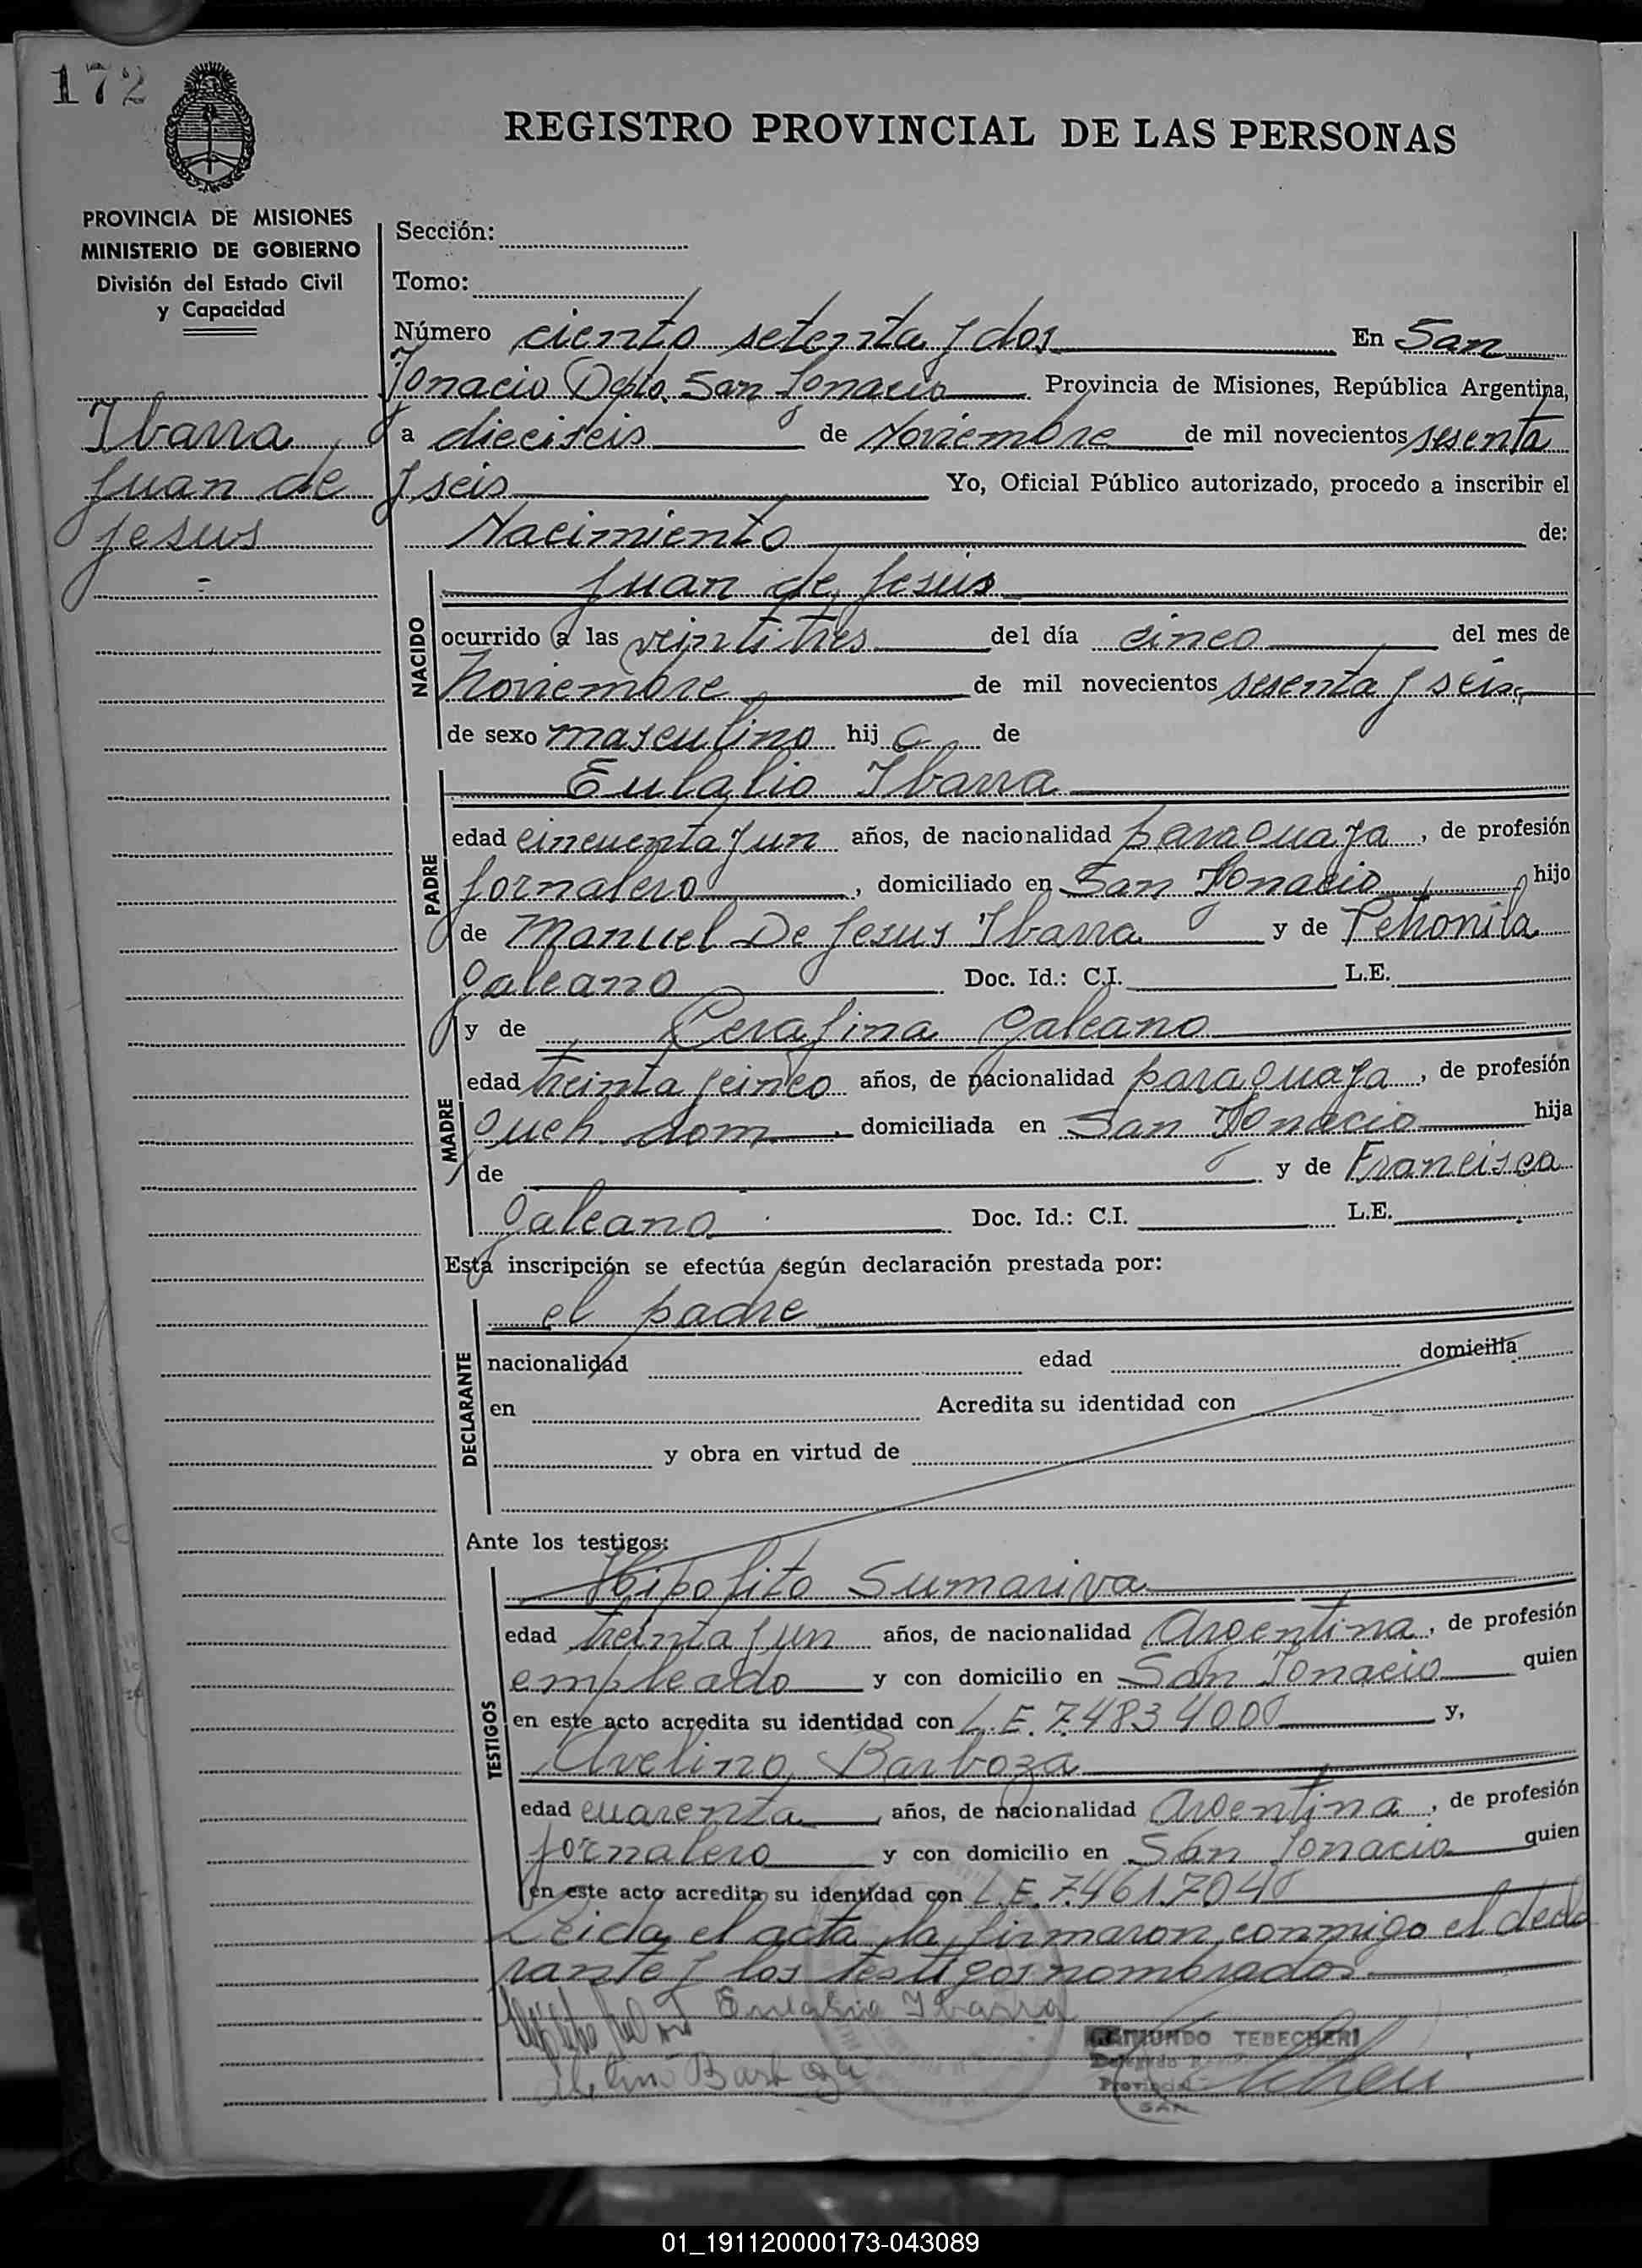 172
REGISTRO PROVINCIAL DE LAS PERSONAS
PROVINCIA DE MISIONES
MINISTERIO DE GOBIERNO
División del Estado Civil
y Capacidad
Sección:
Tomo:
Número ciento setenta y dos En San
Ignacio Dpto. San Ignacio Provincia de Misiones, República Argentina,
a dieciseis de Noviembre de mil novecientos sesenta
y seis Yo, Oficial Público autorizado, procedo a inscribir el
Nacimiento de:
Ibarra,
Juan de
Jesus
NACIDO
Juan de Jesús
ocurrido a las veintitres del día cinco del mes de
Noviembre de mil novecientos sesenta y seis
de sexo masculino hijo de
PADRE
Eulalio Ibarra
edad cincuenta y un años, de nacionalidad paraguaya, de profesión
jornalero, domiciliado en San Ignacio hijo
de Manuel De Jesus Ibarra y de Petronila
Galeano Doc. Id.: C.I. L.E.
MADRE
y de Cerafina Galeano
edad treinta y cinco años, de nacionalidad paraguaya, de profesión
queh. dom. domiciliada en San Ignacio hija
de y de Francisca
Galeano Doc. Id.: C.I. L.E.
Esta inscripción se efectúa según declaración prestada por:
DECLARANTE
el padre
nacionalidad edad domicilia
en Acredita su identidad con
y obra en virtud de
Ante los testigos:
TESTIGOS
Hipolito Sumariva
edad treinta y un años, de nacionalidad Argentina, de profesión
empleado y con domicilio en San Ignacio quien
en este acto acredita su identidad con L.E. 7.483.400 y,
Avelino Barboza
edad cuarenta, años, de nacionalidad Argentina, de profesión
jornalero y con domicilio en San Ignacio quien
en este acto acredita su identidad con L.E. 7.461.704
Leida el acta la firmaron conmigo el decla
rante y los testigos nombrados.
Eulalio Ibarra
RAIMUNDO TEBECHERI
Delegado
Provincial
SAN
Barboza
01_191120000173-043089